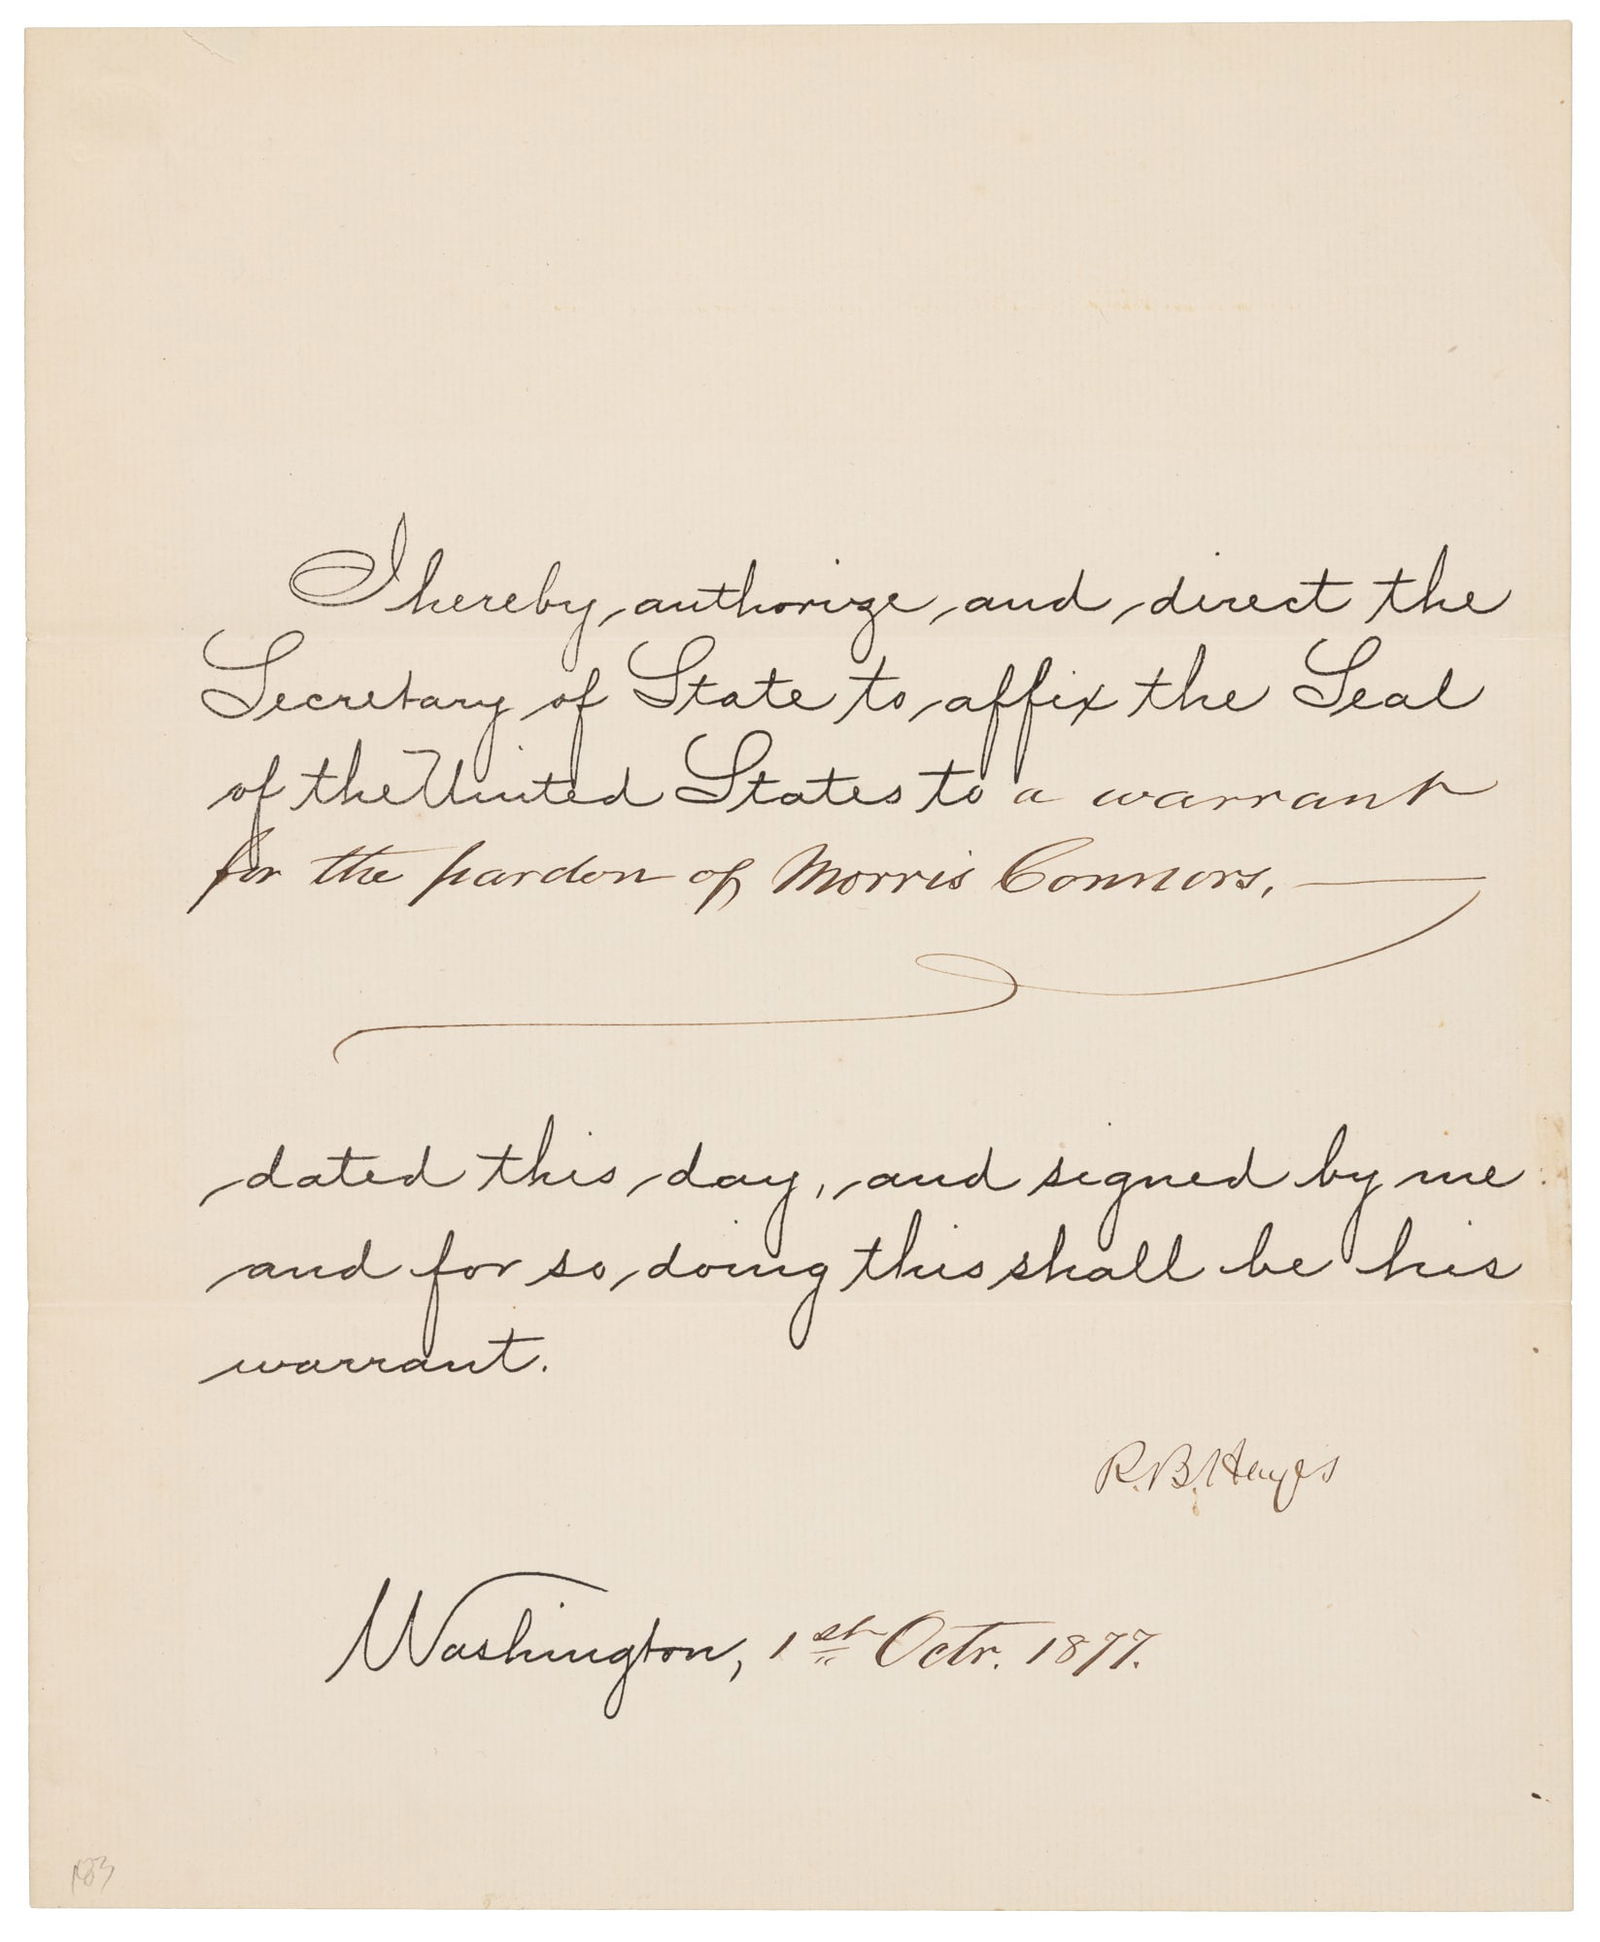 I hereby authorize and direct the
Secretary of State to affix the Seal
of the United States to a warrant
for the pardon of Morris Connors,
dated this day, and signed by me
and for so doing this shall be his
warrant.
R. B. Hayes
Washington, 1st Octr. 1877.
183